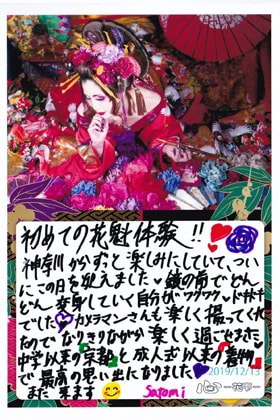 初めての花魁体験!!
神奈川からずっと楽しみにしていて、つい
にこの日を迎えました 鏡の前でどん
どん変身していく自分がワクワクドキドキ
でした カメラマンさんも楽しく撮ってくれ
たのでなりきりながら楽しく過ごせました
中学以来の京都と成人式以来の着物
で最高の思い出になりました
また来ます Satomi
2019/12/13
心 -花雫-